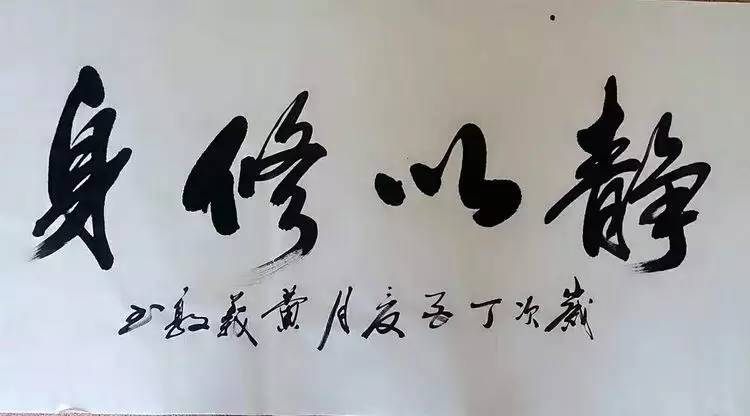 静以修身
歲次丁酉夏月黄義书